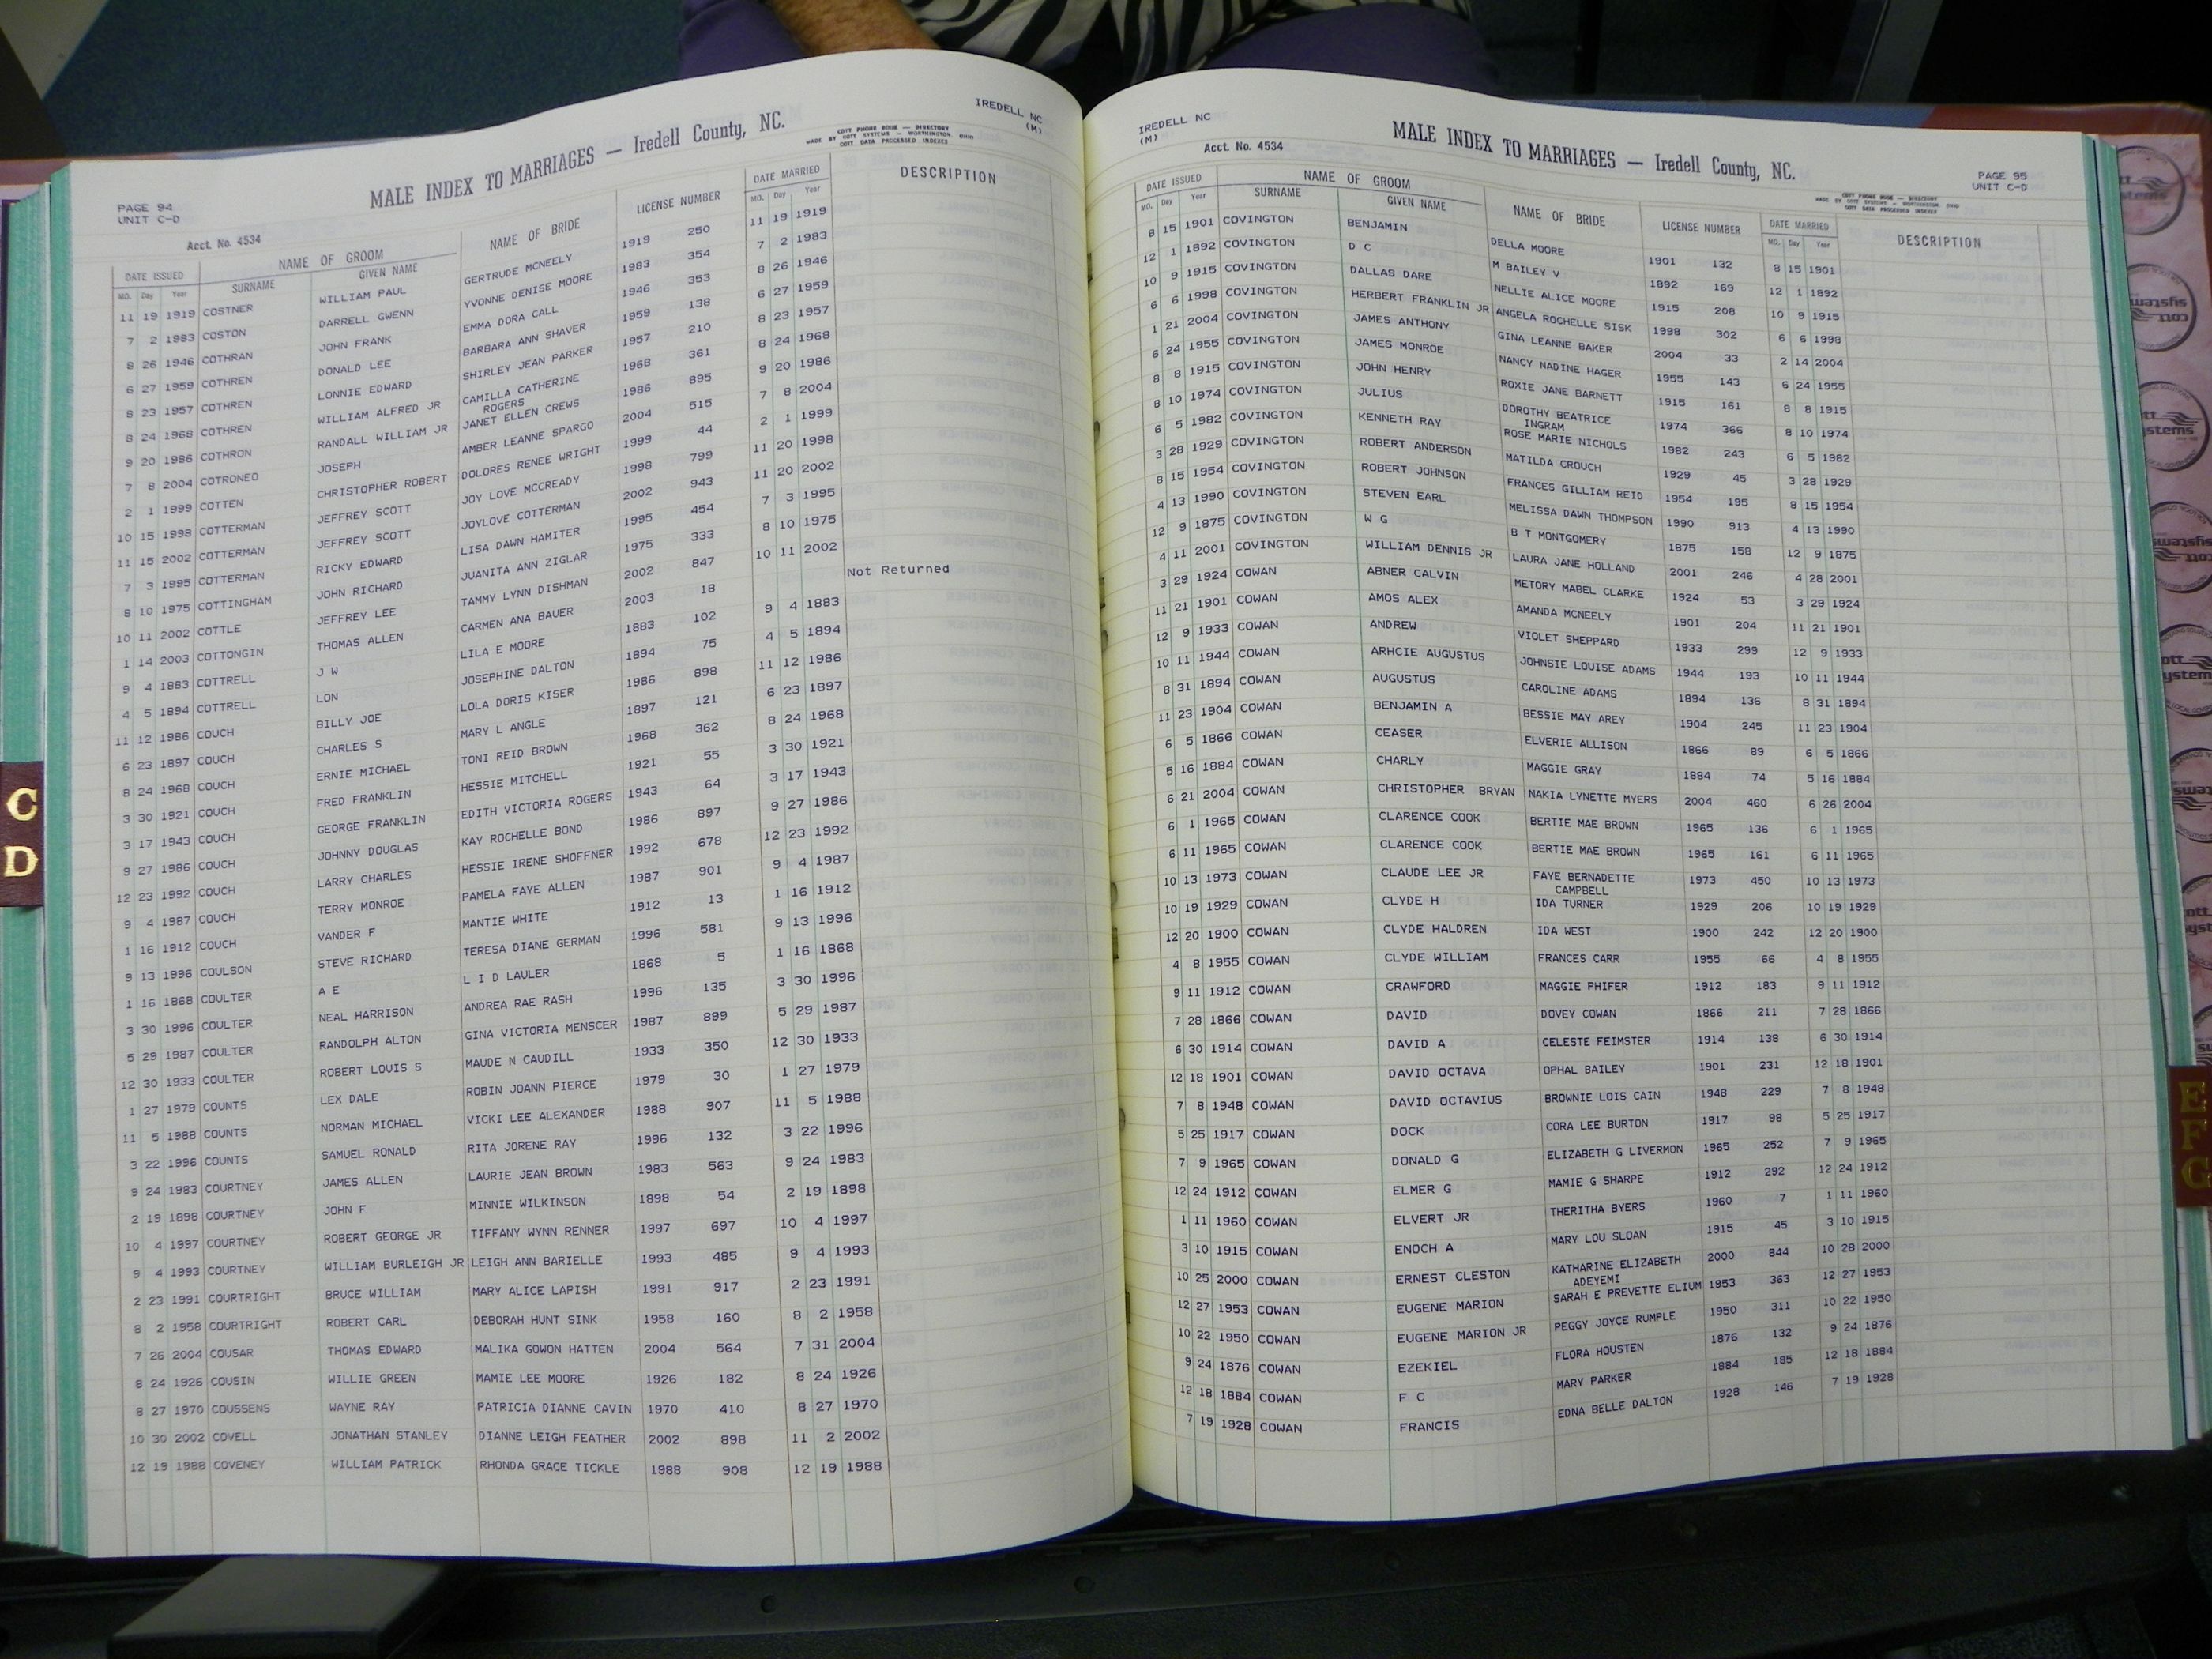 PAGE 94
UNIT C-D
MALE INDEX TO MARRIAGES — Iredell County, NC.
IREDELL NC
(M)
COTT PHONE BOOK — DIRECTORY
MADE BY COTT SYSTEMS — WORTHINGTON, OHIO
COTT DATA PROCESSED INDEXES
Acct. No. 4534
DATE ISSUED NAME OF GROOM NAME OF BRIDE LICENSE NUMBER DATE MARRIED DESCRIPTION
MO. Day Year SURNAME GIVEN NAME MO. Day Year
11 19 1919 COSTNER WILLIAM PAUL GERTRUDE MCNEELY 1919 250 11 19 1919
7 2 1983 COSTON DARRELL GWENN YVONNE DENISE MOORE 1983 354 7 2 1983
8 26 1946 COTHRAN JOHN FRANK EMMA DORA CALL 1946 353 8 26 1946
6 27 1959 COTHREN DONALD LEE BARBARA ANN SHAVER 1959 138 6 27 1959
8 23 1957 COTHREN LONNIE EDWARD SHIRLEY JEAN PARKER 1957 210 8 23 1957
8 24 1968 COTHREN WILLIAM ALFRED JR CAMILLA CATHERINE 1968 361 8 24 1968
ROGERS
9 20 1986 COTHRON RANDALL WILLIAM JR JANET ELLEN CREWS 1986 895 9 20 1986
7 8 2004 COTRONEO JOSEPH AMBER LEANNE SPARGO 2004 515 7 8 2004
2 1 1999 COTTEN CHRISTOPHER ROBERT DOLORES RENEE WRIGHT 1999 44 2 1 1999
10 15 1998 COTTERMAN JEFFREY SCOTT JOY LOVE MCCREADY 1998 799 11 20 1998
11 15 2002 COTTERMAN JEFFREY SCOTT JOYLOVE COTTERMAN 2002 943 11 20 2002
7 3 1995 COTTERMAN RICKY EDWARD LISA DAWN HAMITER 1995 454 7 3 1995
8 10 1975 COTTINGHAM JOHN RICHARD JUANITA ANN ZIGLAR 1975 333 8 10 1975
10 11 2002 COTTLE JEFFREY LEE TAMMY LYNN DISHMAN 2002 847 10 11 2002
1 14 2003 COTTONGIN THOMAS ALLEN CARMEN ANA BAUER 2003 18 Not Returned
9 4 1883 COTTRELL J W LILA E MOORE 1883 102 9 4 1883
4 5 1894 COTTRELL LON JOSEPHINE DALTON 1894 75 4 5 1894
11 12 1986 COUCH BILLY JOE LOLA DORIS KISER 1986 898 11 12 1986
6 23 1897 COUCH CHARLES S MARY L ANGLE 1897 121 6 23 1897
8 24 1968 COUCH ERNIE MICHAEL TONI REID BROWN 1968 362 8 24 1968
3 30 1921 COUCH FRED FRANKLIN HESSIE MITCHELL 1921 55 3 30 1921
3 17 1943 COUCH GEORGE FRANKLIN EDITH VICTORIA ROGERS 1943 64 3 17 1943
9 27 1986 COUCH JOHNNY DOUGLAS KAY ROCHELLE BOND 1986 897 9 27 1986
12 23 1992 COUCH LARRY CHARLES HESSIE IRENE SHOFFNER 1992 678 12 23 1992
9 4 1987 COUCH TERRY MONROE PAMELA FAYE ALLEN 1987 901 9 4 1987
1 16 1912 COUCH VANDER F MANTIE WHITE 1912 13 1 16 1912
9 13 1996 COULSON STEVE RICHARD TERESA DIANE GERMAN 1996 581 9 13 1996
1 16 1868 COULTER A E L I D LAULER 1868 5 1 16 1868
3 30 1996 COULTER NEAL HARRISON ANDREA RAE RASH 1996 135 3 30 1996
5 29 1987 COULTER RANDOLPH ALTON GINA VICTORIA MENSCER 1987 899 5 29 1987
12 30 1933 COULTER ROBERT LOUIS S MAUDE N CAUDILL 1933 350 12 30 1933
1 27 1979 COUNTS LEX DALE ROBIN JOANN PIERCE 1979 30 1 27 1979
11 5 1988 COUNTS NORMAN MICHAEL VICKI LEE ALEXANDER 1988 907 11 5 1988
3 22 1996 COUNTS SAMUEL RONALD RITA JORENE RAY 1996 132 3 22 1996
9 24 1983 COURTNEY JAMES ALLEN LAURIE JEAN BROWN 1983 563 9 24 1983
2 19 1898 COURTNEY JOHN F MINNIE WILKINSON 1898 54 2 19 1898
10 4 1997 COURTNEY ROBERT GEORGE JR TIFFANY WYNN RENNER 1997 697 10 4 1997
9 4 1993 COURTNEY WILLIAM BURLEIGH JR LEIGH ANN BARIELLE 1993 485 9 4 1993
2 23 1991 COURTRIGHT BRUCE WILLIAM MARY ALICE LAPISH 1991 917 2 23 1991
8 2 1958 COURTRIGHT ROBERT CARL DEBORAH HUNT SINK 1958 160 8 2 1958
7 26 2004 COUSAR THOMAS EDWARD MALIKA GOWON HATTEN 2004 564 7 31 2004
8 24 1926 COUSIN WILLIE GREEN MAMIE LEE MOORE 1926 182 8 24 1926
8 27 1970 COUSSENS WAYNE RAY PATRICIA DIANNE CAVIN 1970 410 8 27 1970
10 30 2002 COVELL JONATHAN STANLEY DIANNE LEIGH FEATHER 2002 898 11 2 2002
12 19 1988 COVENEY WILLIAM PATRICK RHONDA GRACE TICKLE 1988 908 12 19 1988
C
D
IREDELL NC
(M)
Acct. No. 4534
MALE INDEX TO MARRIAGES — Iredell County, NC.
PAGE 95
UNIT C-D
COTT PHONE BOOK — DIRECTORY
MADE BY COTT SYSTEMS — WORTHINGTON, OHIO
COTT DATA PROCESSED INDEXES
DATE ISSUED NAME OF GROOM NAME OF BRIDE LICENSE NUMBER DATE MARRIED DESCRIPTION
MO. Day Year SURNAME GIVEN NAME MO. Day Year
8 15 1901 COVINGTON BENJAMIN DELLA MOORE 1901 132 8 15 1901
12 1 1892 COVINGTON D C M BAILEY V 1892 169 12 1 1892
10 9 1915 COVINGTON DALLAS DARE NELLIE ALICE MOORE 1915 208 10 9 1915
6 6 1998 COVINGTON HERBERT FRANKLIN JR ANGELA ROCHELLE SISK 1998 302 6 6 1998
1 21 2004 COVINGTON JAMES ANTHONY GINA LEANNE BAKER 2004 33 2 14 2004
6 24 1955 COVINGTON JAMES MONROE NANCY NADINE HAGER 1955 143 6 24 1955
8 8 1915 COVINGTON JOHN HENRY ROXIE JANE BARNETT 1915 161 8 8 1915
8 10 1974 COVINGTON JULIUS DOROTHY BEATRICE 1974 366 8 10 1974
INGRAM
6 5 1982 COVINGTON KENNETH RAY ROSE MARIE NICHOLS 1982 243 6 5 1982
3 28 1929 COVINGTON ROBERT ANDERSON MATILDA CROUCH 1929 45 3 28 1929
8 15 1954 COVINGTON ROBERT JOHNSON FRANCES GILLIAM REID 1954 195 8 15 1954
4 13 1990 COVINGTON STEVEN EARL MELISSA DAWN THOMPSON 1990 913 4 13 1990
12 9 1875 COVINGTON W G B T MONTGOMERY 1875 158 12 9 1875
4 11 2001 COVINGTON WILLIAM DENNIS JR LAURA JANE HOLLAND 2001 246 4 28 2001
3 29 1924 COWAN ABNER CALVIN METORY MABEL CLARKE 1924 53 3 29 1924
11 21 1901 COWAN AMOS ALEX AMANDA MCNEELY 1901 204 11 21 1901
12 9 1933 COWAN ANDREW VIOLET SHEPPARD 1933 299 12 9 1933
10 11 1944 COWAN ARHCIE AUGUSTUS JOHNSIE LOUISE ADAMS 1944 193 10 11 1944
8 31 1894 COWAN AUGUSTUS CAROLINE ADAMS 1894 136 8 31 1894
11 23 1904 COWAN BENJAMIN A BESSIE MAY AREY 1904 245 11 23 1904
6 5 1866 COWAN CEASER ELVERIE ALLISON 1866 89 6 5 1866
5 16 1884 COWAN CHARLY MAGGIE GRAY 1884 74 5 16 1884
6 21 2004 COWAN CHRISTOPHER BRYAN NAKIA LYNETTE MYERS 2004 460 6 26 2004
6 1 1965 COWAN CLARENCE COOK BERTIE MAE BROWN 1965 136 6 1 1965
6 11 1965 COWAN CLARENCE COOK BERTIE MAE BROWN 1965 161 6 11 1965
10 13 1973 COWAN CLAUDE LEE JR FAYE BERNADETTE 1973 450 10 13 1973
CAMPBELL
10 19 1929 COWAN CLYDE H IDA TURNER 1929 206 10 19 1929
12 20 1900 COWAN CLYDE HALDREN IDA WEST 1900 242 12 20 1900
4 8 1955 COWAN CLYDE WILLIAM FRANCES CARR 1955 66 4 8 1955
9 11 1912 COWAN CRAWFORD MAGGIE PHIFER 1912 183 9 11 1912
7 28 1866 COWAN DAVID DOVEY COWAN 1866 211 7 28 1866
6 30 1914 COWAN DAVID A CELESTE FEIMSTER 1914 138 6 30 1914
12 18 1901 COWAN DAVID OCTAVA OPHAL BAILEY 1901 231 12 18 1901
7 8 1948 COWAN DAVID OCTAVIUS BROWNIE LOIS CAIN 1948 229 7 8 1948
5 25 1917 COWAN DOCK CORA LEE BURTON 1917 98 5 25 1917
7 9 1965 COWAN DONALD G ELIZABETH G LIVERMON 1965 252 7 9 1965
12 24 1912 COWAN ELMER G MAMIE G SHARPE 1912 292 12 24 1912
1 11 1960 COWAN ELVERT JR THERITHA BYERS 1960 7 1 11 1960
3 10 1915 COWAN ENOCH A MARY LOU SLOAN 1915 45 3 10 1915
10 25 2000 COWAN ERNEST CLESTON KATHARINE ELIZABETH 2000 844 10 28 2000
ADEYEMI
12 27 1953 COWAN EUGENE MARION SARAH E PREVETTE ELIUM 1953 363 12 27 1953
10 22 1950 COWAN EUGENE MARION JR PEGGY JOYCE RUMPLE 1950 311 10 22 1950
9 24 1876 COWAN EZEKIEL FLORA HOUSTEN 1876 132 9 24 1876
12 18 1884 COWAN F C MARY PARKER 1884 185 12 18 1884
7 19 1928 COWAN FRANCIS EDNA BELLE DALTON 1928 146 7 19 1928
E
F
G